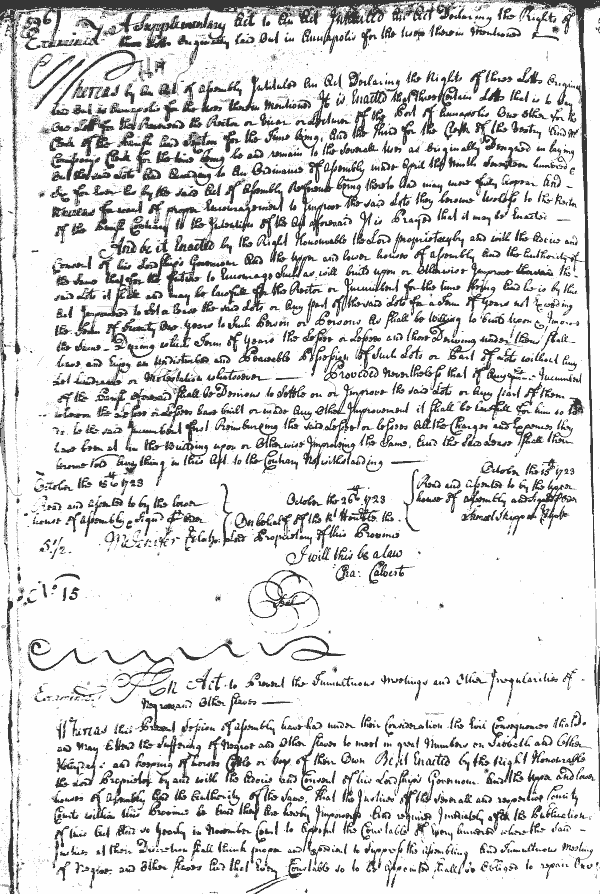 A Supplementary Act to An Act Intituled An Act Declaring the Rights of
Examined three Lotts Originaly laid out in Annapolis for the uses therein Mentioned
Whereas by an Act of Assembly Intituled An Act Declaring the Rights of three Lotts Origina
laid out in Annapolis for the uses therein Mentioned It is Enacted that three Certain Lotts that is to say
One Lott for the Reverend the Rector or Vicar or of the Port of Annapolis One other for the
Clerk of the Parish And Sexton for the time being, And the third for the Clerk of the Vestry And
Clerk for the time being be and remain to the severall uses as Originally Designed in laying
Out the said Lotts And According to An Ordinance of Assembly made April the Ninth Seventeen hundred
&c for Ever As by the said Act of Assembly Reference being thereto had may more fully Appear And
Whereas for want of proper Encouragement to Improve the said Lots they become useless to the Rector
of the Parish Contrary to the Intention of the Act aforesaid It is Prayed that it may be Enacted
And be it Enacted by the Right Honourable the Lord Proprietary by and with the Advice and
Consent of his Lordships Governour And the upper and lower houses of Assembly And the Authority of
the Same that for the future to Encourage Such as will build upon or Otherwise Improve the
said Lots it shall and may be lawfull for the Rector or Incumbent for the time being And he is by this
Act Impowered to Let or Lease the said Lots or Any part of the said Lots for a Term of Years not Exceeding
the Term of Twenty One Years to Such Person or Persons As shall be willing to build upon & Improve
the Same. During which Term of Years the Lessee or Lessees and those Deriving under them shall
have and Enjoy an Undisturbed and Peaceable Possession of Such Lots or Part of Lots without Any
Let hindrance or Molestation whatsoever Provided Nevertheless that if Any Incumbent
of the Parish aforesaid shall be Desirous to Settle on or Improve the said Lots or Any part of them
whereon the Lessee or Lessees have built or made Any Other Improvement it shall be lawfull for him so to
do. he the said Incumbent first Reimbursing the said Lessee or Lessees All the Charges and Expences they
have been at in the Building upon or Otherwise Improving the Same. And the said Lease shall then
become void Any thing in this Act to the Contrary Notwithstanding
October the 1723
Read and assented to by the lower
house of Assembly & Signd p Order
October the 26th 1723
On behalf of the Rt Honble the
Lord Proprietary of this Province
I will this be a law
Cha: Calvert
October the 1723
Read and assented to by the upper
house of Assembly and Signed p Order
5 1/2
No 15
Examined An Act to Prevent the Tumultuous Meetings and Other Irregularities of
Negroes and Other Slaves
Whereas this Present Session of Assembly have had under their Consideration the Evil Consequences that do
and May Attend the Suffering of Negroes and Other Slaves to meet in great Numbers on Sabbath and Other
Holydays and keeping of horses Cattle or hogs of their Own Be it Enacted by the Right Honourable
the Lord Proprietor by and with the Advice and Consent of his Lordships Governour And the upper and lower
houses of Assembly And the Authority of the Same, that the Justices of the severall and respective County
Courts within this Province be And they are hereby Impowered And required Imediately After the Publication
of this Act And so Yearly in November Court to Appoint the Constable of Every hundred where the said
Justices at their Discretion shall think proper and Expedient to Suppress the Assembling And Tumultuous Meeting
of Negroes and Other Slaves And that Every Constable so to be Appointed shall be Obliged to repair